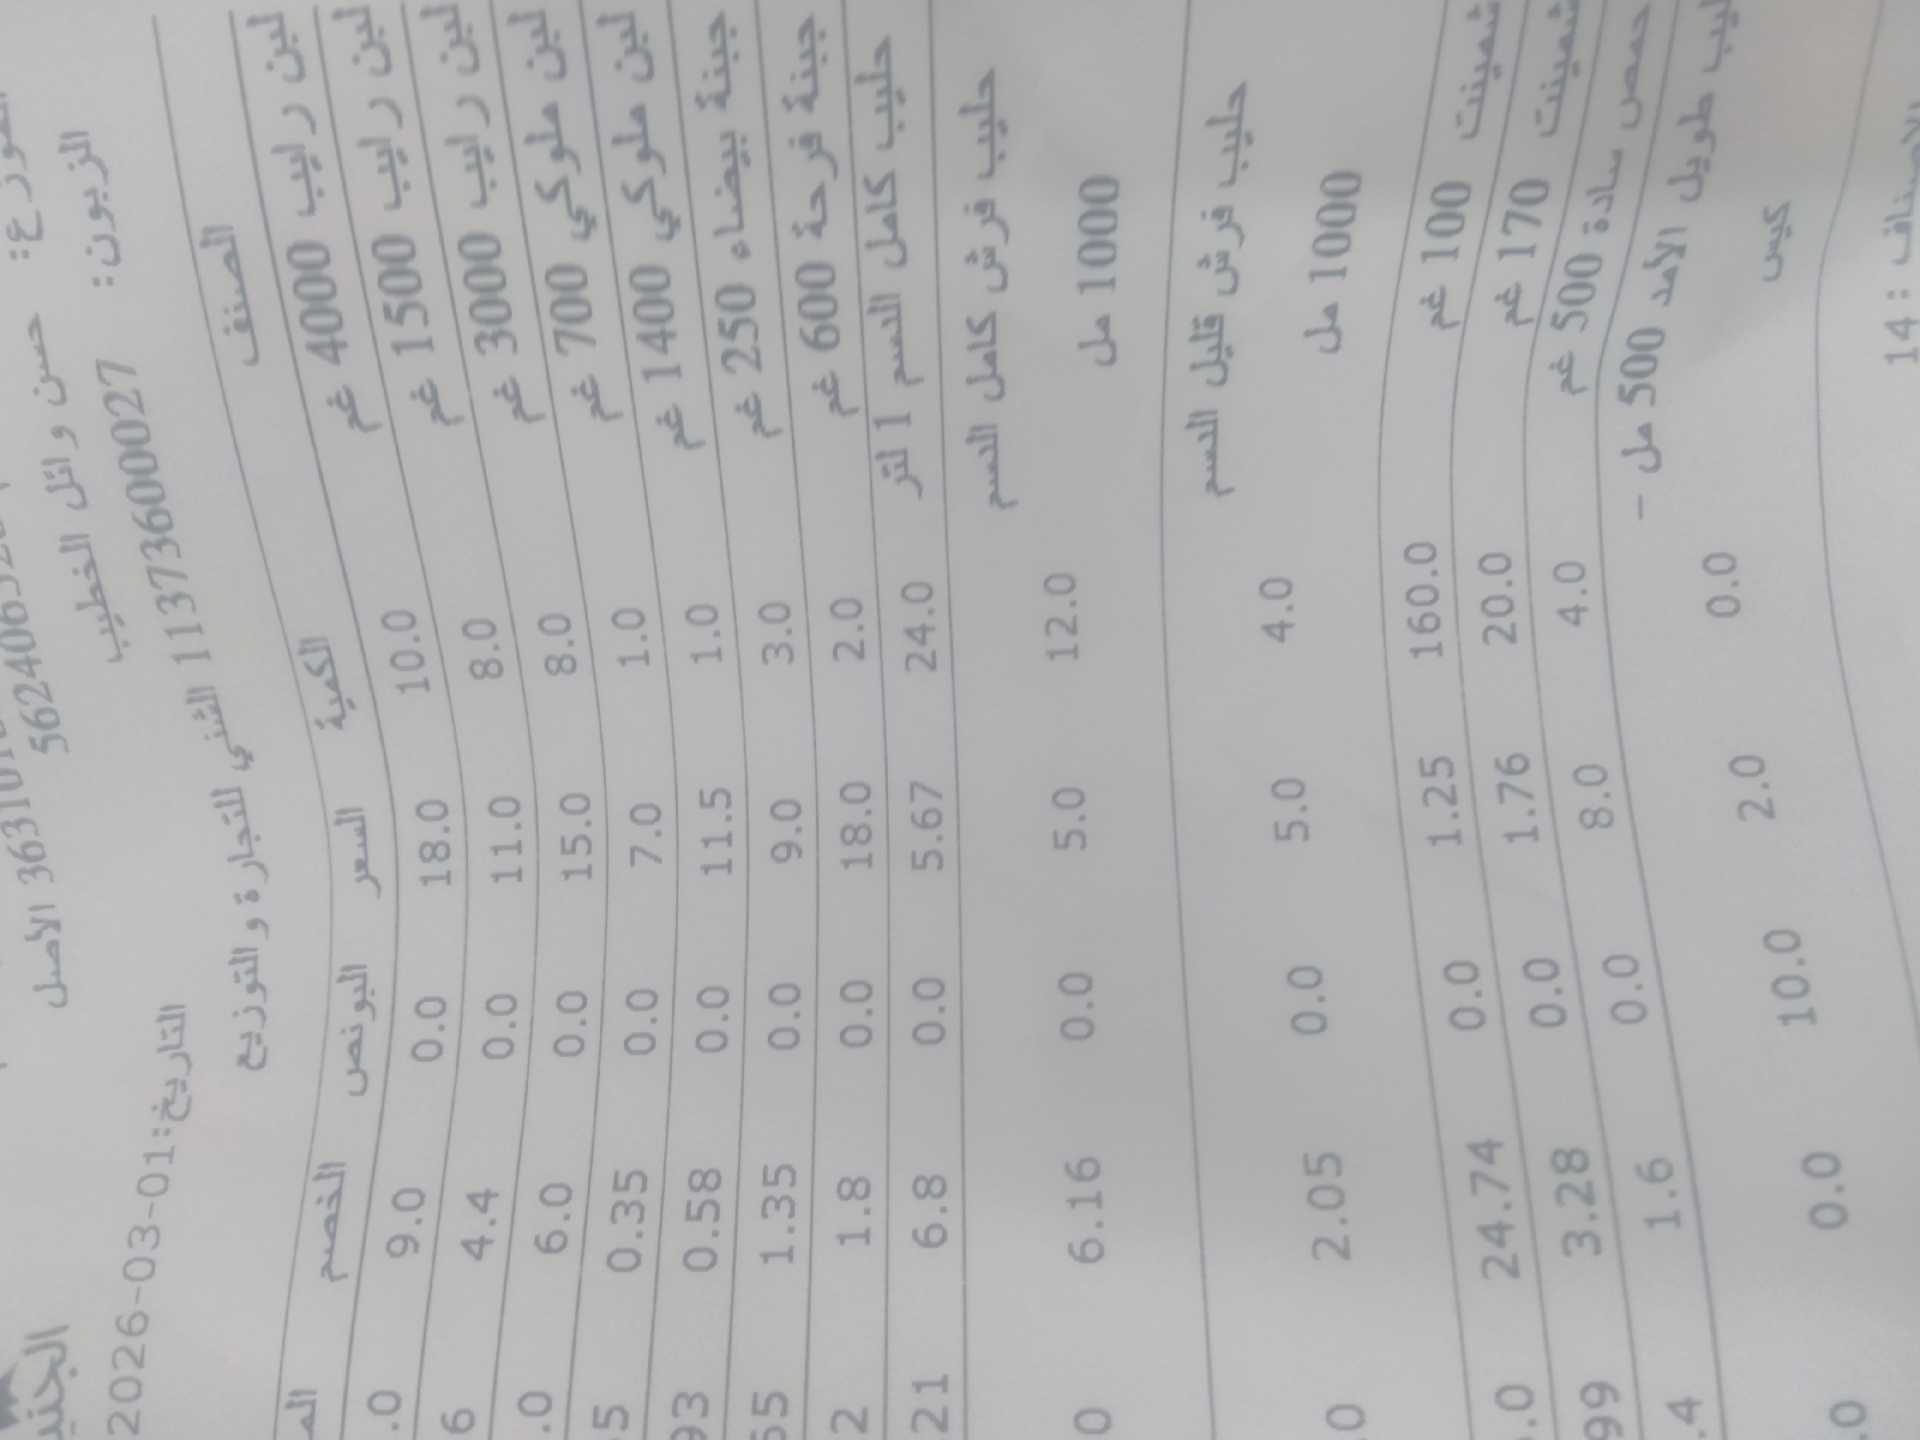 3631016 الاصل
الموزع: حسن وائل الخطيب
الزبون: 1137360002 7 الثني للتجارة والتوزيع
التاريخ:2026-03-01
الصنف الكمية السعر البونص الخصم
لبن رايب 4000 غم 10.0 18.0 0.0 9.0 .0
لبن رايب 1500 غم 8.0 11.0 0.0 4.4 6
لبن رايب 3000 غم 8.0 15.0 0.0 6.0 .0
لبن ملوكي 700 غم 1.0 7.0 0.0 0.35 5
لبن ملوكي 1400 غم 1.0 11.5 0.0 0.58 93
جبنة بيضاء 250 غم 3.0 9.0 0.0 1.35 65
جبنة فرحة 600 غم 2.0 18.0 0.0 1.8 2
حليب كامل الدسم 1 لتر 24.0 5.67 0.0 6.8 21
حليب فرش كامل الدسم
1000 مل 12.0 5.0 0.0 6.16 0
حليب فرش قليل الدسم
1000 مل 4.0 5.0 0.0 2.05 .0
شمينت 100 غم 160.0 1.25 0.0 24.74 .0
شمينت 170 غم 20.0 1.76 0.0 3.28 99
حمص سادة 500 غم 4.0 8.0 0.0 1.6 .4
طويل الأمد 500 مل -
كيس 0.0 2.0 10.0 0.0 .0
14